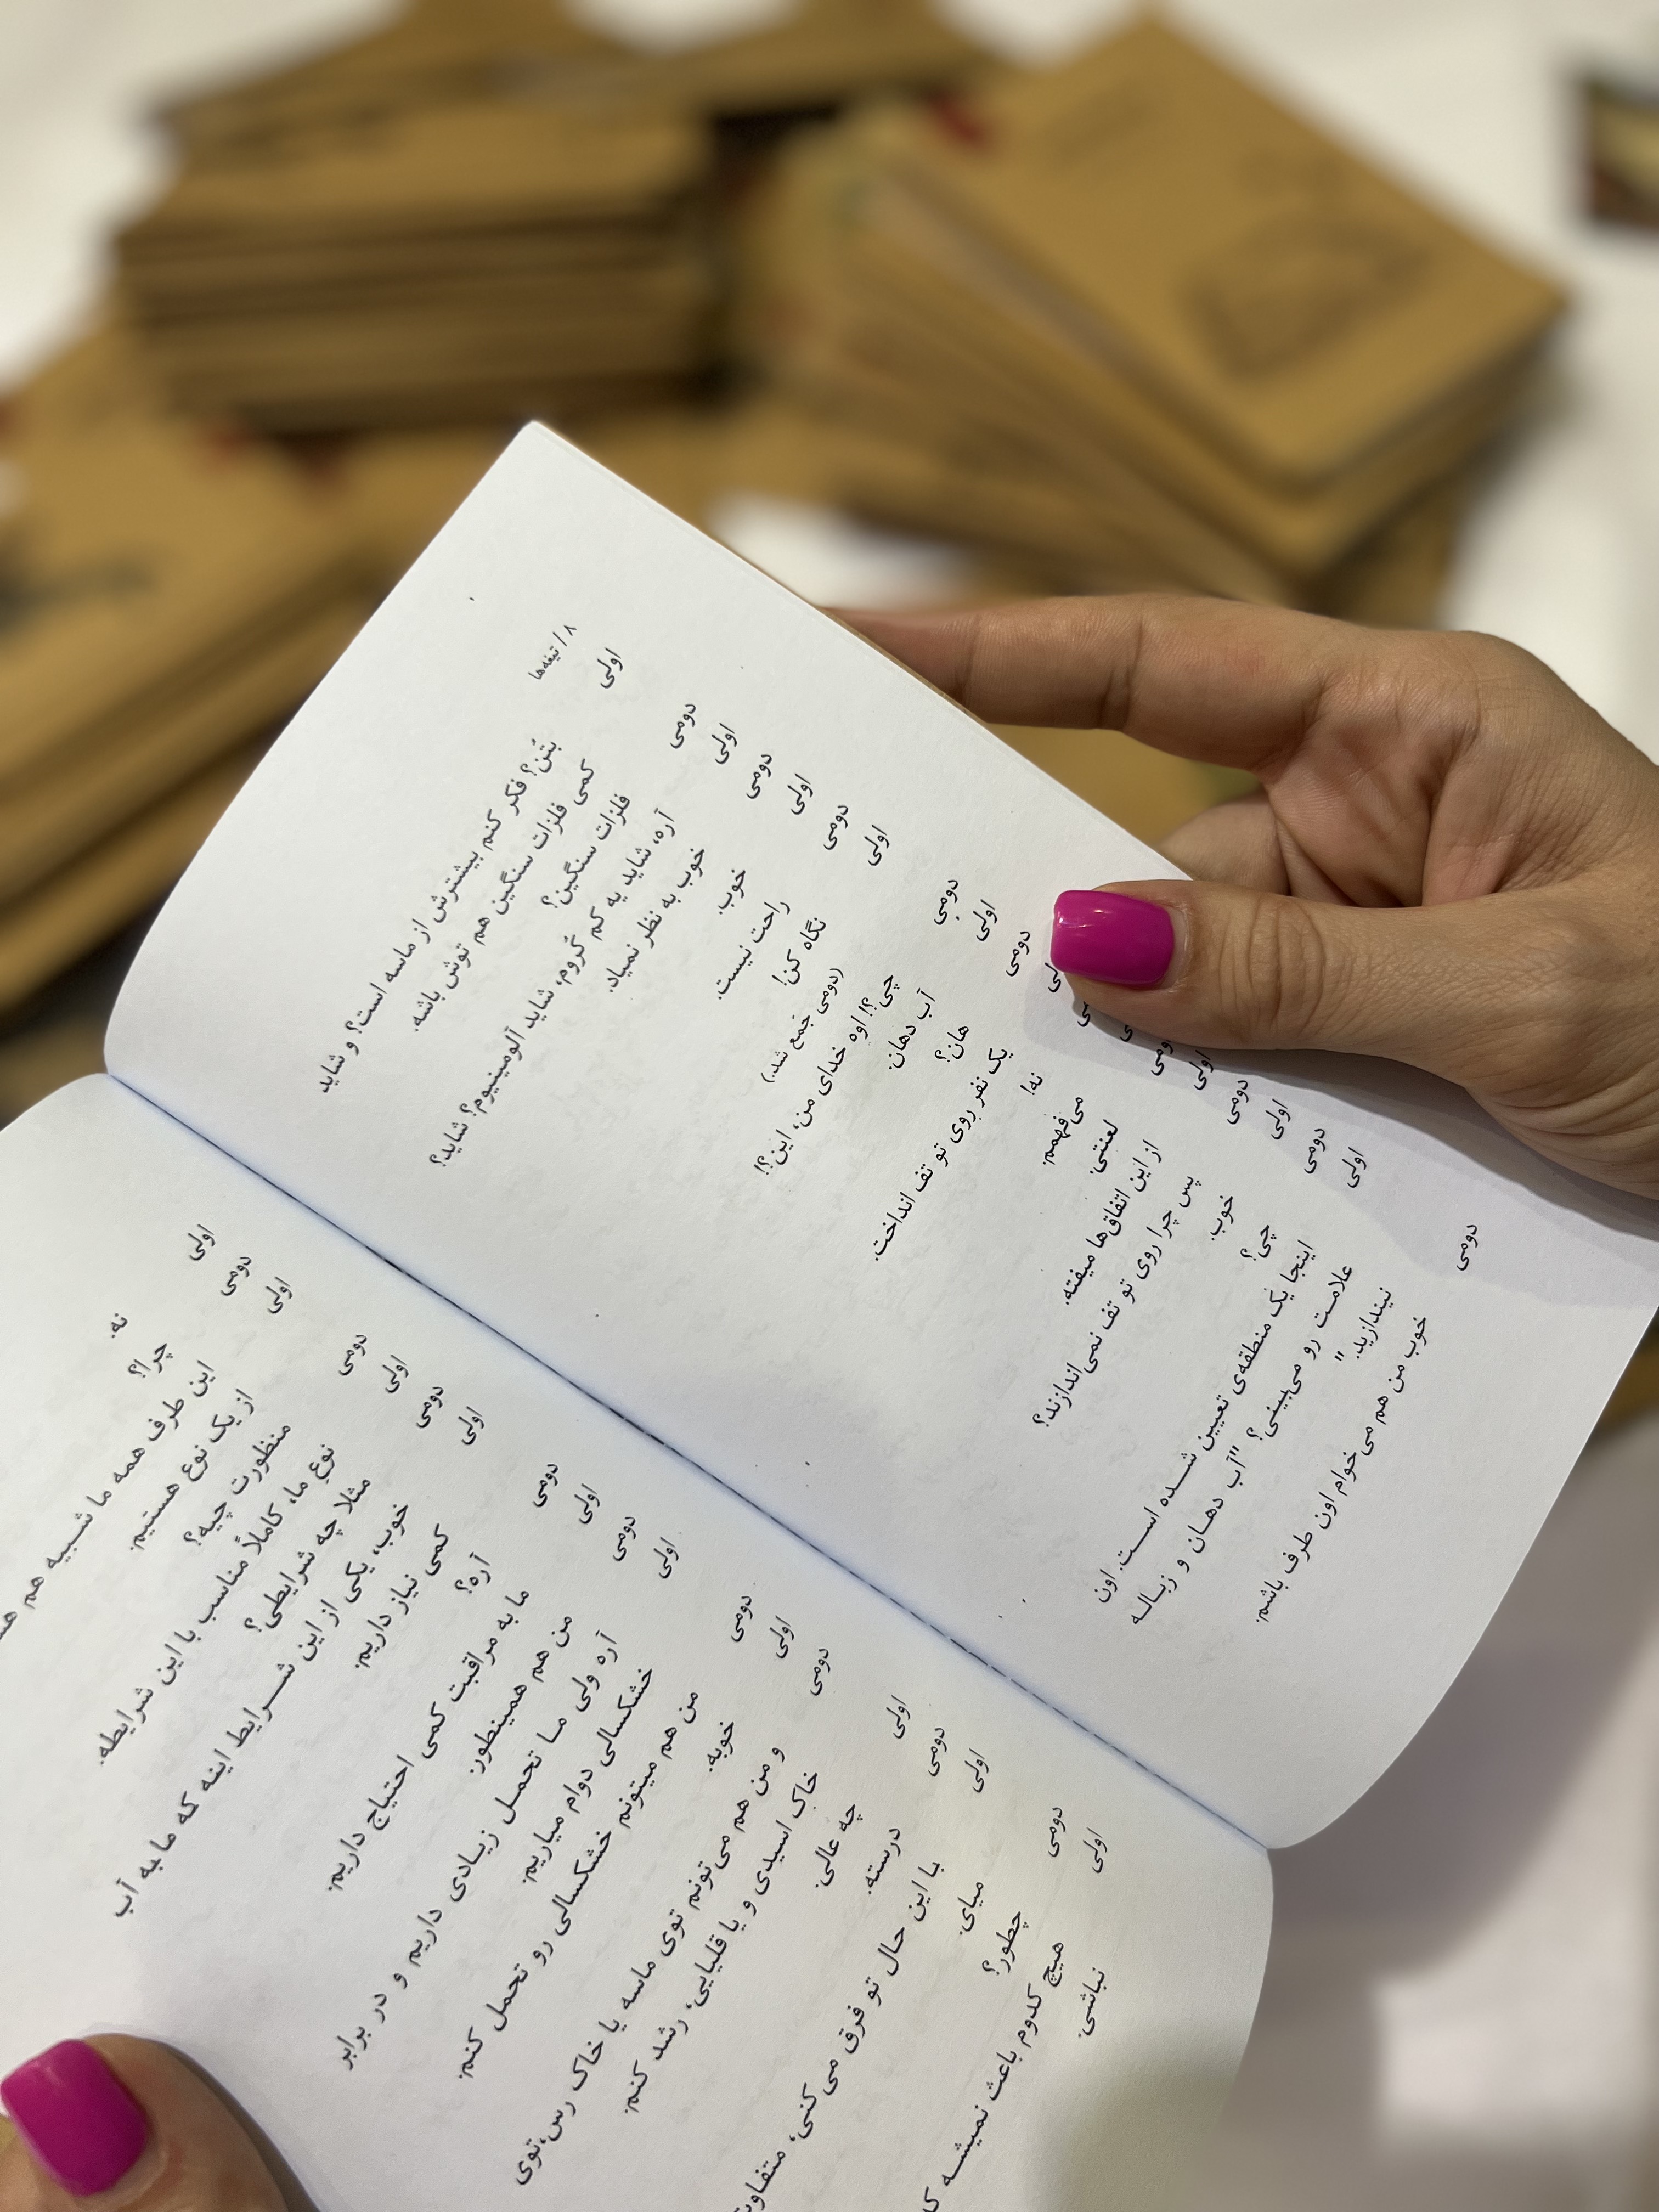 ۸ / تیغه‌ها
اولی بتن؟ فکر کنم بیشترش از ماسه است؟ و شاید
کمی فلزات سنگین هم توش باشه.
دومی فلزات سنگین؟
اولی آره، شاید یه کم کُروم، شاید آلومینیوم؟ شاید؟
دومی خوب به نظر نمیاد.
اولی خوب.
دومی راحت نیست.
اولی نگاه کن!
(دومی جَمع شد.)
دومی چی؟!! اوهِ خدای من، این؟!
اولی آب دهان.
دومی هان؟
یک نفر روی تو تف انداخت.
نه!
می‌فهمم.
لعنتی.
اولی از این اتفاق‌ها میفته.
دومی پس چرا روی تو تف نمی‌اندازند؟
اولی خوب.
دومی چی؟
اولی اینجا یک منطقه‌ی تعیین شده است. اون
علامت رو می‌بینی؟ "آب دهان و زباله
نیندازید."
دومی خوب من هم می‌خوام اون طرف باشم.
اولی نه.
دومی چرا؟
اولی این طرف همه ما شبیه هم
از یک نوع هستیم.
دومی منظورت چیه؟
اولی نوعِ ما، کاملاً مناسب با این شرایطه.
دومی مثلا چه شرایطی؟
اولی خوب، یکی از این شرایط اینه که ما به آب
کمی نیاز داریم.
دومی آره؟
اولی ما به مراقبت کمی احتیاج داریم.
دومی من هم همینطور.
اولی آره ولی ما تحمل زیادی داریم و در برابر
خشکسالی دوام میاریم.
دومی من هم میتونم خشکسالی رو تحمل کنم.
اولی خوبه.
دومی و من هم می‌تونم توی ماسه یا خاک رس،توی
خاک اسیدی و یا قلیایی، رشد کنم.
اولی چه عالی.
دومی درسته.
اولی با این حال تو فرق می‌کنی، متفاوت
میای.
دومی چطور؟
اولی هیچ کدوم باعث نمیشه
نباشی.